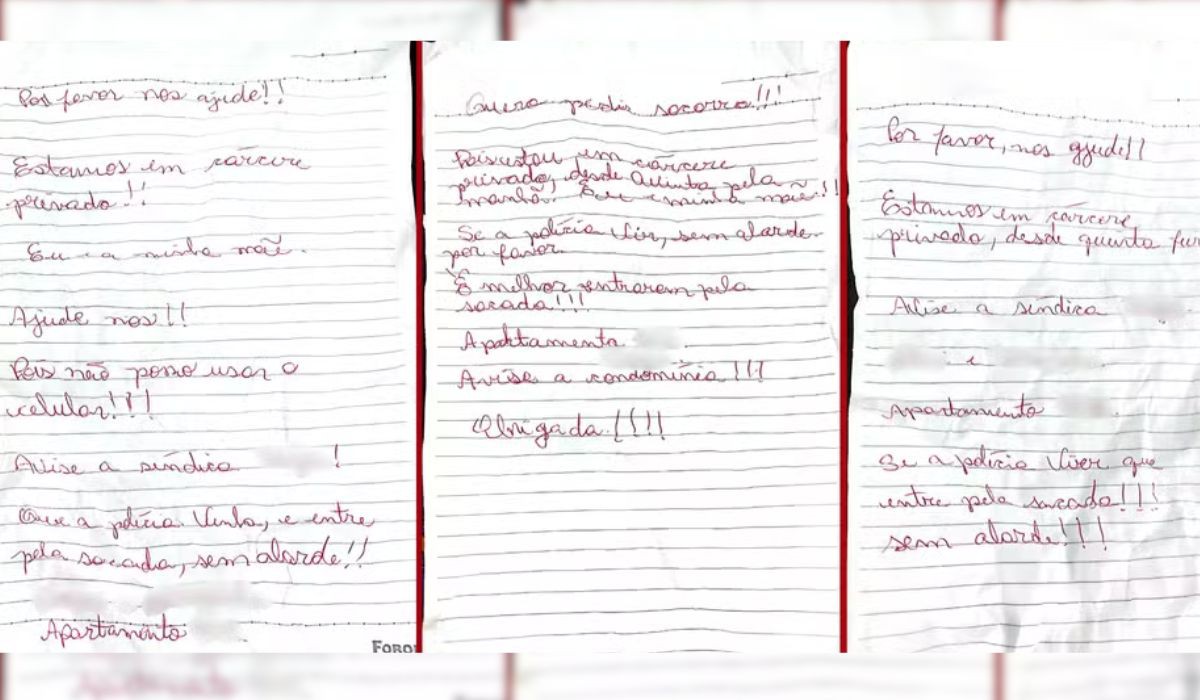 Por favor nos ajude!!
Estamos em cárcere
privado!!
Eu e a minha mãe.
Ajude nos!!
Pois não posso usar o
celular!!!
Avise a síndica !
Que a polícia venha, e entre
pela sacada, sem alarde!!
Apartamento
Quero pedir socorro!!!
Pois estou em cárcere
privado, desde Quinta pela
manhã. Eu e minha mãe!!
Se a polícia vir, sem alarde
por favor.
É melhor entrarem pela
sacada!!!
Apartamento
Avise a condomínia!!!
Obrigada!!!!
Por favor, nos ajude!!
Estamos em cárcere
privado, desde quinta
Avise a síndica
e
Apartamento
Se a polícia Viver que
entre pela sacada!!!
sem alarde!!!